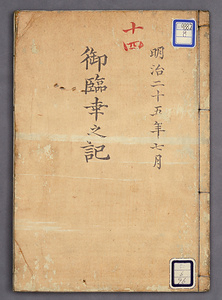 明治二十五年七月
御臨幸之記
十四